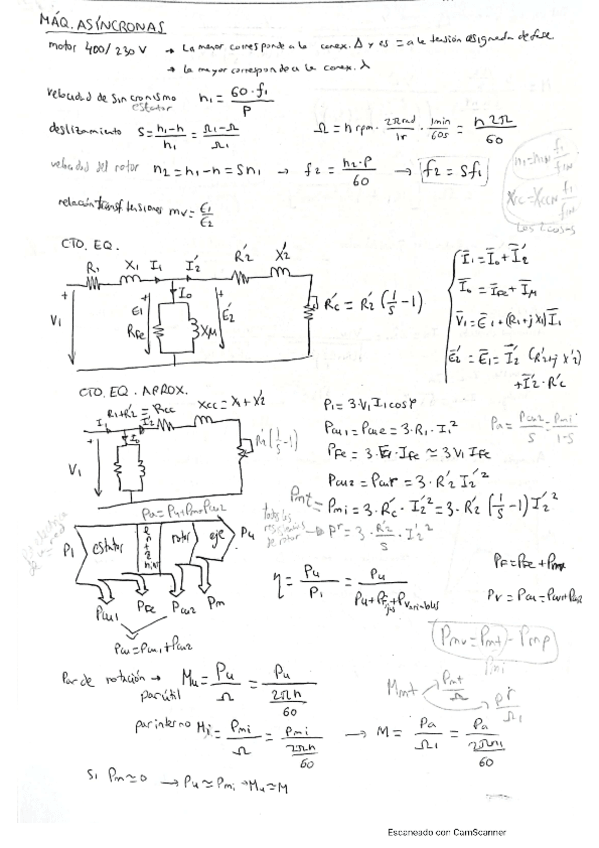 MÁQ. ASÍNCRONAS
motor 400/230 V → La menor corresponde a la conex. Δ y es = a la tensión asignada de fase
→ La mayor corresponde a la conex. λ
velocidad de sincronismo n₁ = 60·f₁/P
estator
deslizamiento S = n₁-n/n₁ = Ω₁-Ω/Ω₁ Ω = n rpm · 2π rad/1r · 1min/60s = n2π/60
velocidad del rotor n₂ = n₁-n = Sn₁ → f₂ = n₂·P/60 → f₂ = Sf₁
Xcc = XccN f₁/f₁N
Los 2 casos
relación transf tensiones mv = E₁/E₂
CTO. EQ.
R₁ X₁ I₁ I₂' R₂' X₂'
I₀
V₁ E₁ RFe Xμ E₂' Rc' = R₂' (1/S -1)
I₁ = I₀ + I₂'
I₀ = IFe + Iμ
V₁ = E₁ + (R₁+j X₁) I₁
E₂' = E₁ = I₂' (R₂'+j X₂')
+ I₂'·Rc'
CTO. EQ. APROX.
R₁+R₂' = Rcc Xcc = X₁+X₂'
I₁ I₀ I₂'
V₁ Rc'(1/S -1)
P₁ = 3·V₁ I₁ cosφ
Pcu1 = Pcue = 3·R₁·I₁² Pa = Pcu2/S = Pmi/1-S
PFe = 3·E₁·IFe ≃ 3 V₁ IFe
Pcu2 = Pcur = 3·R₂' I₂'²
Pmt = Pmi = 3·Rc'·I₂'² = 3·R₂' (1/S -1) I₂'²
Pa = Pu+Pm+Pcu2
P₁ estator rotor eje Pu
Pcu1 PFe Pcu2 Pm
Pcu = Pcu1+Pcu2
→ Pr = 3·R₂'/S·I₂'²
η = Pu/P₁ = Pu/Pu+Pfijas+Pvariables
PF = PFe + Pm
PV = Pcu = Pcu1+Pcu2
Pmu = Pmt - Pmp
Pmi
Par de rotación → Mu = Pu/Ω = Pu/2πn/60
par útil
Mmt Pmt/Ω
Pr/Ω₁
par interno Mi = Pmi/Ω = Pmi/2πn/60 → M = Pa/Ω₁ = Pa/2πn₁/60
Si Pm ≃ 0 → Pu ≃ Pmi → Mu ≃ M
Escaneado con CamScanner